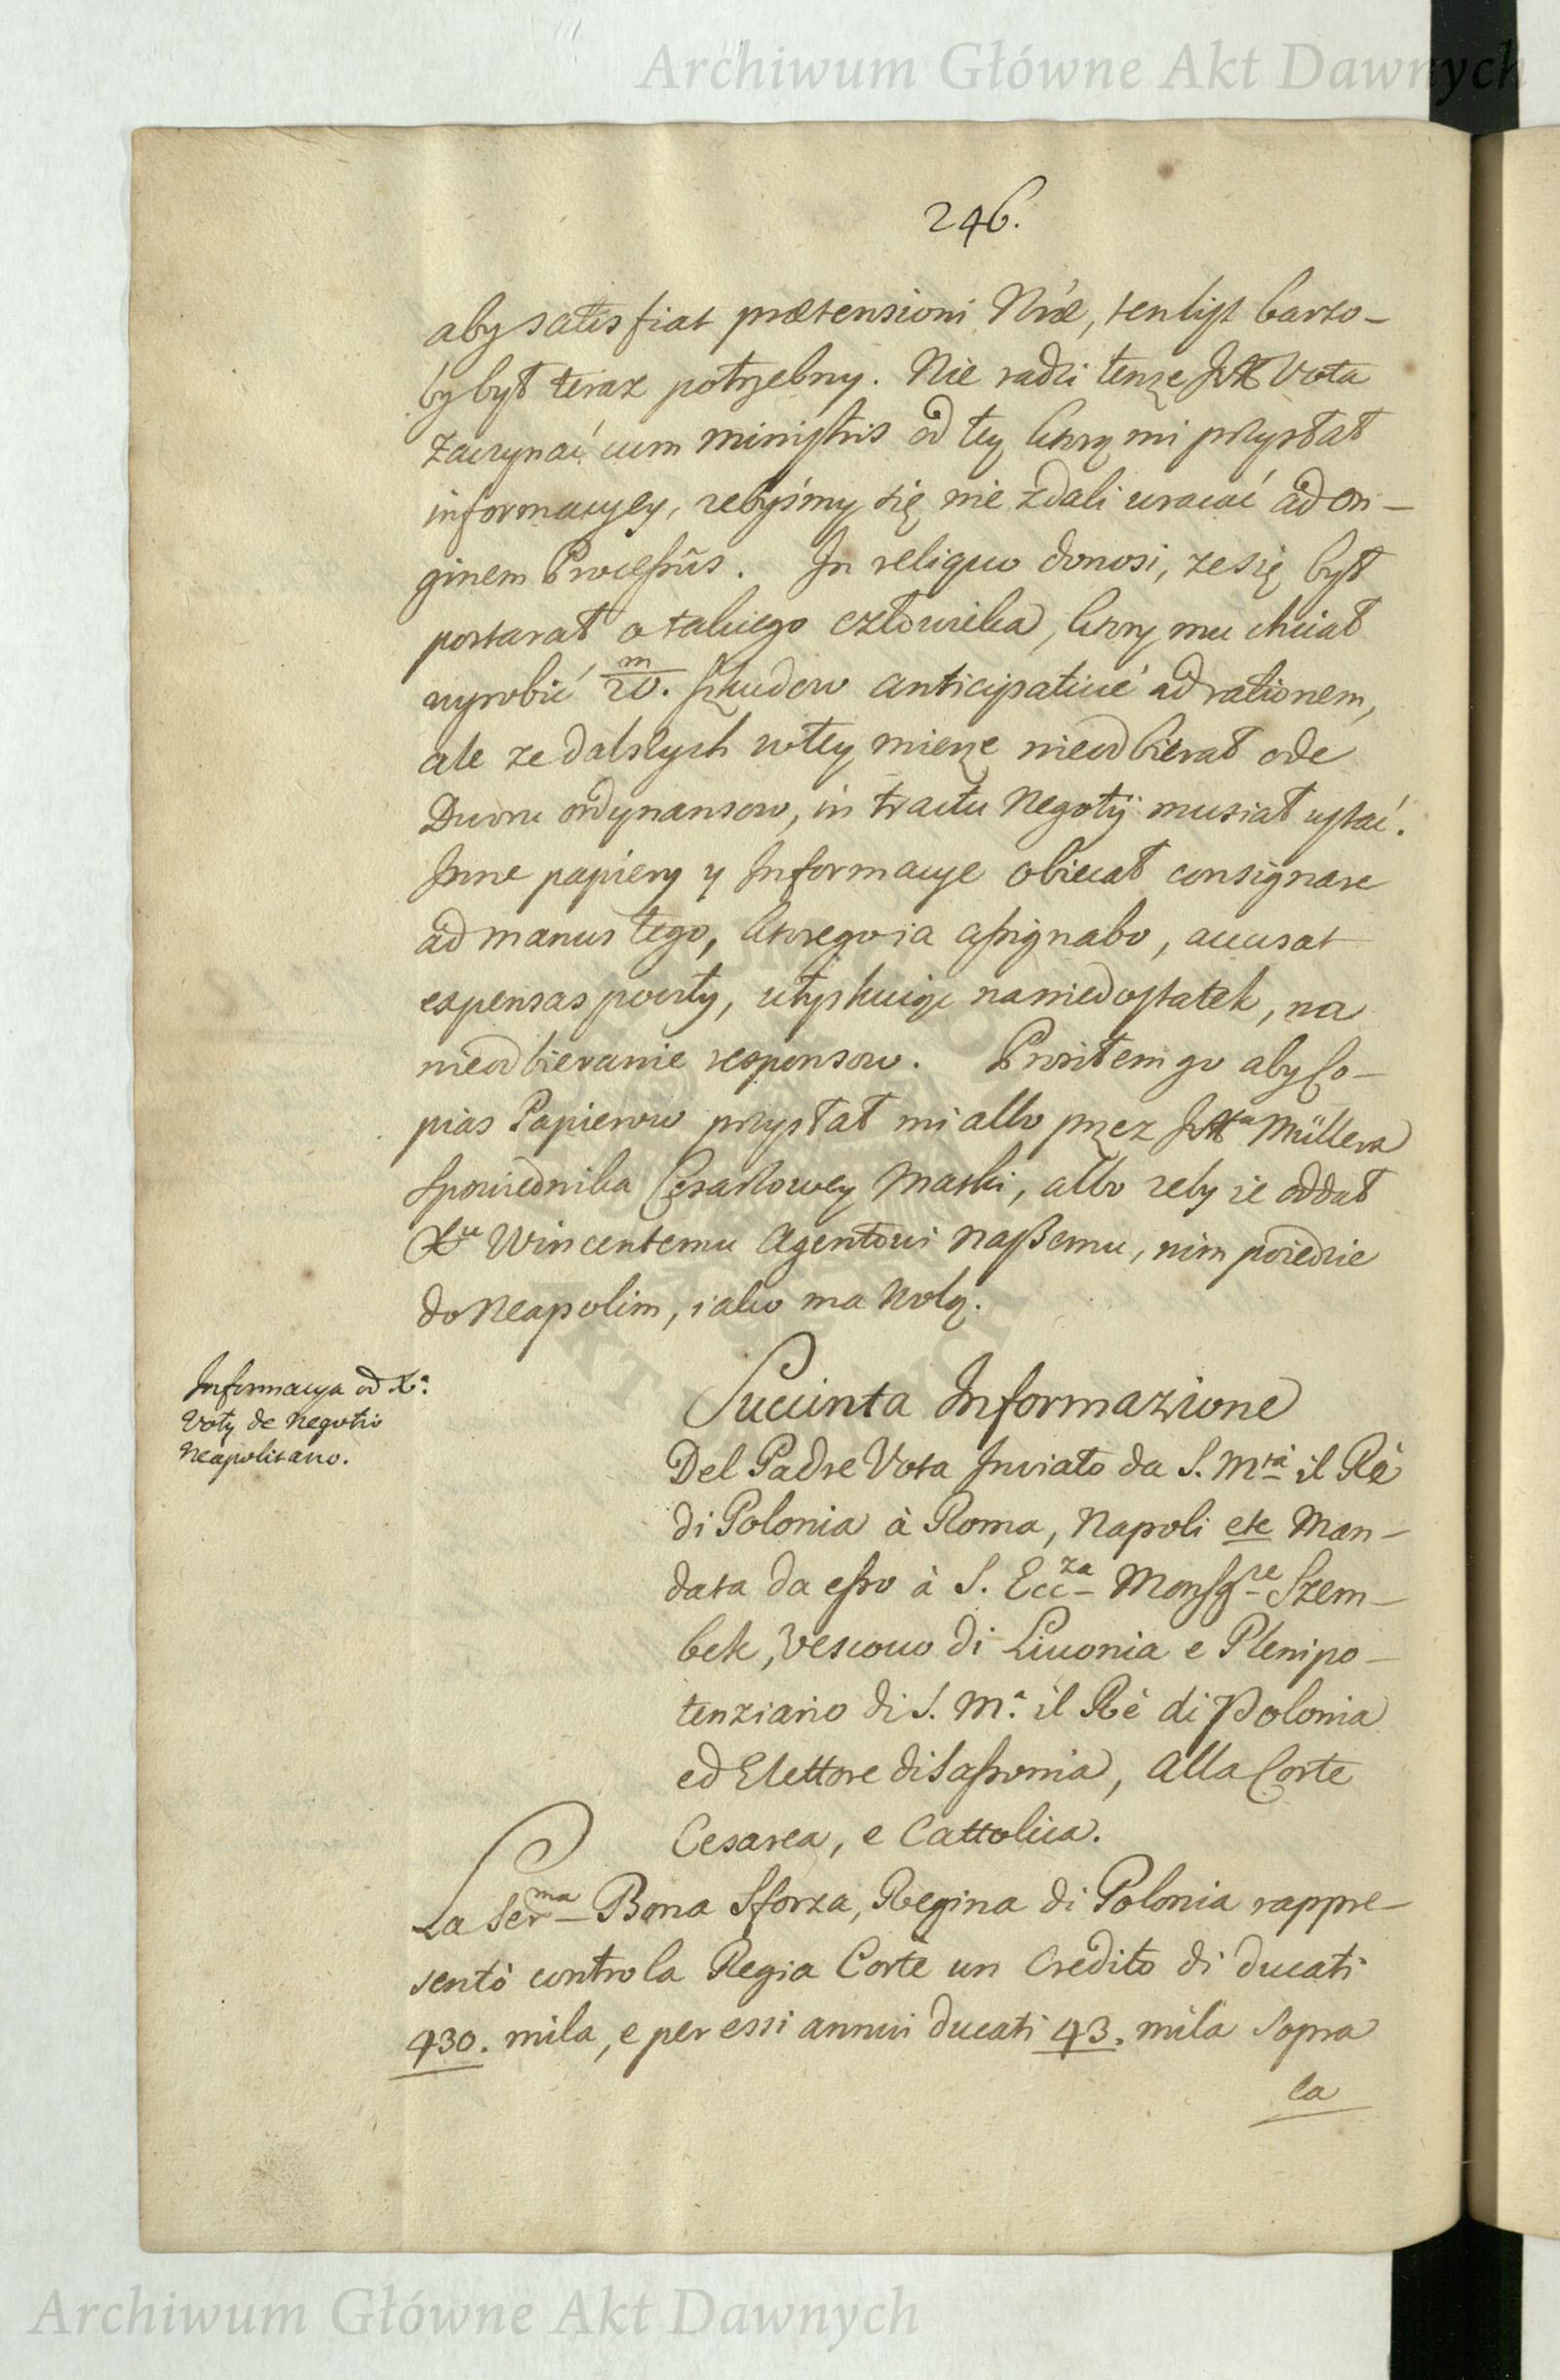 Archiwum Główne Akt Dawnych
246.
aby satisfiat prætensioni Nræ, ten list barzo-
by był teraz potrzebny. Nie radzi tenze JX Vota
zaczynać cum ministris od tey ktorą mi przysłał
informacyey, zebyśmy się nie zdali wracać ad ori-
ginem Processũs. In reliquo donosi, ze się był
postarał o takiego człowieka, ktory mu chciał
wyrobić 20.m szkudow anticipativé ad rationem,
ale ze dalszych w tey mierze nieodbierał ode
Dworu ordynansow, in tractu Negotÿ musiał ustać.
Inne papiery y Informacye obiecał consignare
ad manus tego, ktorego ia assignabo, accusat
expensas poczty, utyskuiąc na niedostatek, na
nieodbieranie responsow. Prosiłem go aby Co-
pias Papierow przysłał mi albo przez JXa Müllera
Spowiednika Cesarzowey Matki, albo zeby ie oddał
Xu Wincentemu Agentowi naszemu, nim poiedzie
do Neapolim, iako ma wolą.
Informacya od Xa.
Voty de negotio
Neapolitano.
Succinta Informazione
Del Padre Vota Inviato da S. Mtà il Rè
di Polonia à Roma, Napoli etc Man-
data da esso à S. Eccza Monsgre Szem-
bek, Vescovo di Livonia e Plenipo-
tenziario di S. M.a il Rè di Polonia
ed Elettore di Sassonia, alla Corte
Cesarea, e Cattolica.
La Serma Bona Sforza, Regina di Polonia rappre-
sentò contro la Regia Corte un Credito di ducati
430. mila, e per essi annui ducati 43. mila sopra
la
Archiwum Główne Akt Dawnych